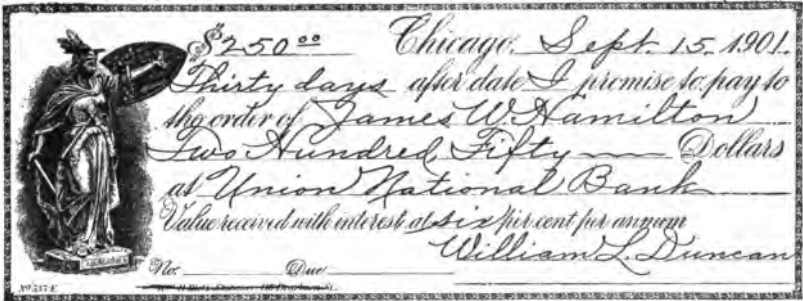 $250.00 Chicago, Sept. 15, 1901.
Thirty days after date I promise to pay to
the order of James W. Hamilton
Two Hundred Fifty Dollars
at Union National Bank
Value received with interest at six per cent per annum
William L. Duncan
No. Due